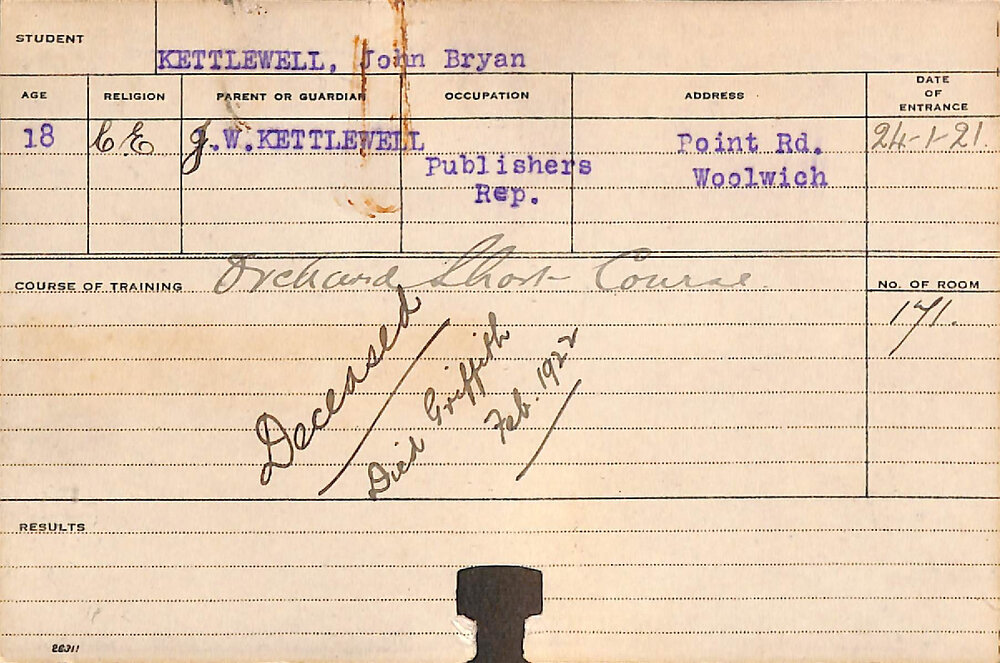 STUDENT
KETTLEWELL, John Bryan
AGE RELIGION PARENT OR GUARDIAN OCCUPATION ADDRESS DATE OF ENTRANCE
18 C.E. J.W.KETTLEWELL Publishers Rep. Point Rd. Woolwich 24-1-21.
COURSE OF TRAINING Orchard Short Course No. OF ROOM
171.
Deceased
Died Griffith
Feb. 1922
RESULTS
26311